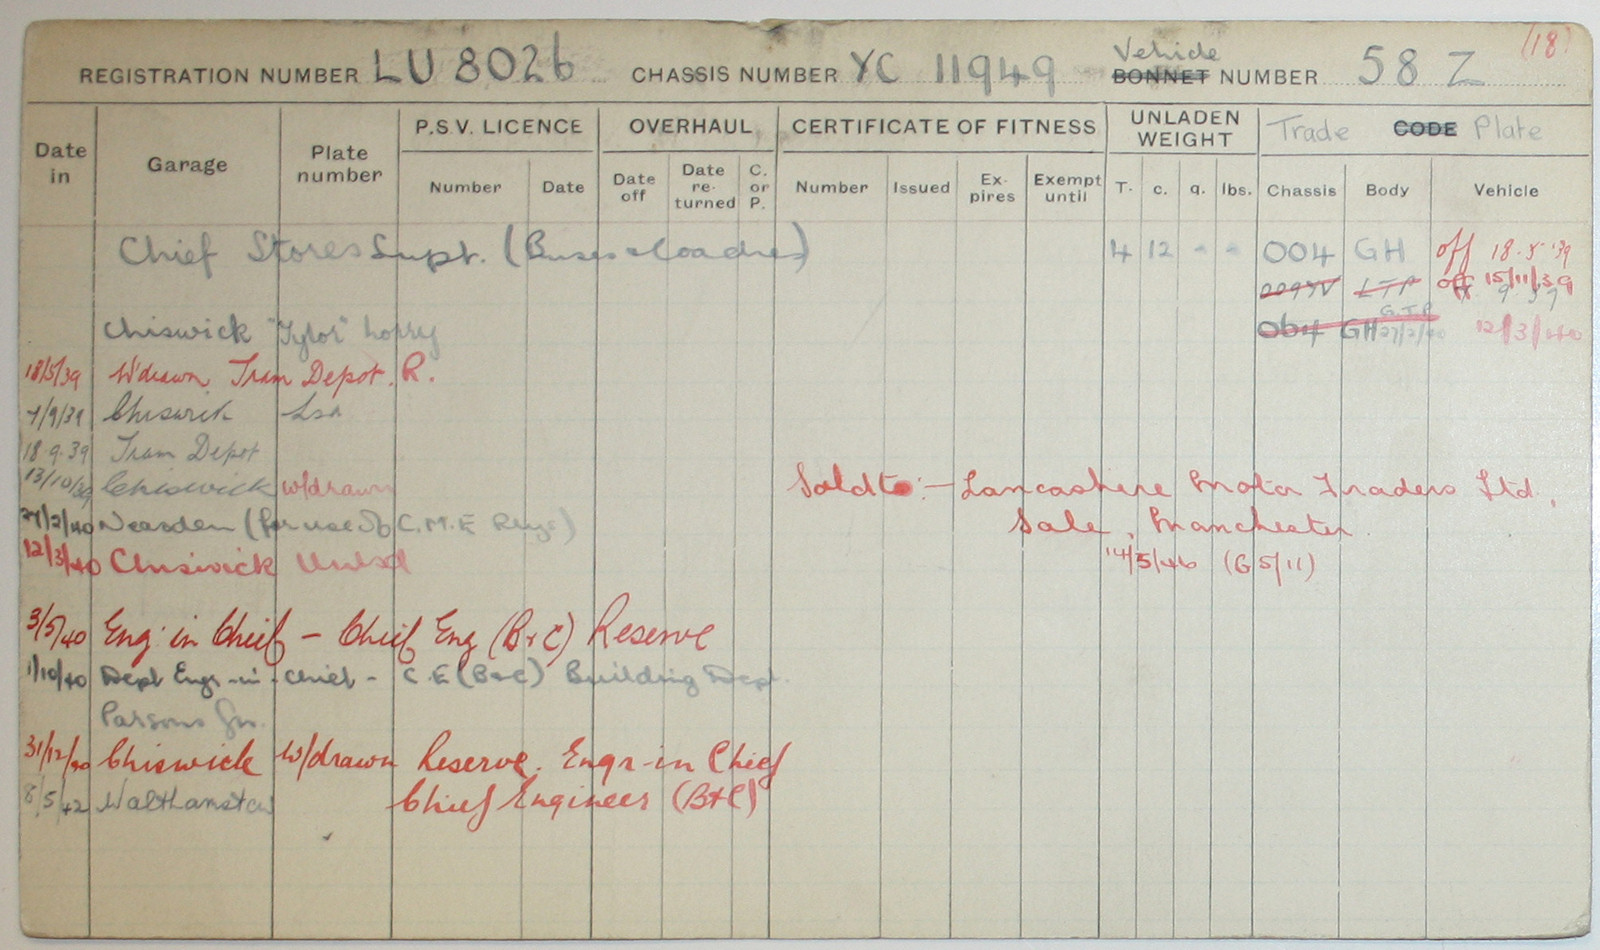 (18)
REGISTRATION NUMBER LU 8026 CHASSIS NUMBER YC 11949 Vehicle BONNET NUMBER 58 Z
Date in Garage Plate number P.S.V. LICENCE OVERHAUL CERTIFICATE OF FITNESS UNLADEN WEIGHT Trade CODE Plate
Number Date Date off Date re-turned C. or P. Number Issued Ex-pires Exempt until T. c. q. lbs. Chassis Body Vehicle
Chief Stores Supt. (Buses & Coaches) 4 12 - - 004 GH off 18.5.'39
LTP off 15/11/39
Chiswick "Tylor" Lorry 064 GH 27/2/40 12/3/40
18/5/39 W'drawn Tram Depot. R.
7/9/39 Chiswick
18.9.39 Tram Depot
13/10/39 Chiswick w/drawn Sold to:- Lancashire Motor Traders Ltd.
27/2/40 Neasden (for use of C.M.E Rlys) Sale, Manchester
12/3/40 Chiswick 14/5/46 (G5/11)
3/5/40 Eng: in Chief - Chief Eng (B&C) Reserve
1/10/40 Dept Engr-in-Chief - C.E (B&C) Building Dept.
Parsons Gn.
31/12/40 Chiswick W/drawn Reserve. Engr-in Chief
8/5/42 Walthamstow Chief Engineer (B+C)